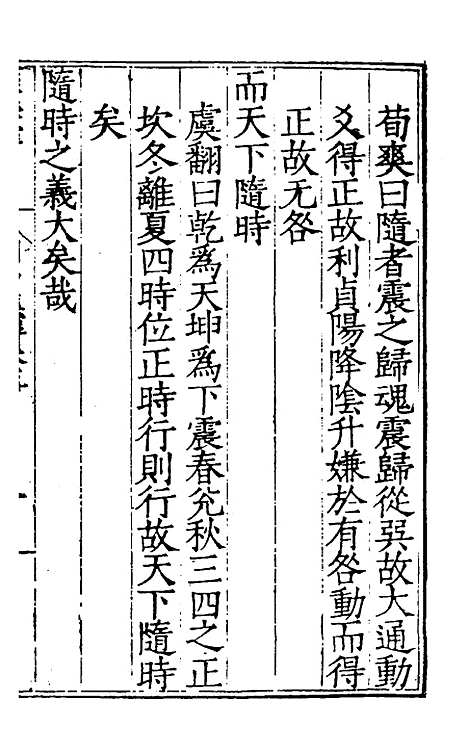 荀爽曰隨者震之歸魂震歸從巽故大通動
爻得正故利貞陽降陰升嫌於有咎動而得
正故无咎
而天下隨時
虞翻曰乾為天坤為下震春兌秋三四之正
坎冬離夏四時位正時行則行故天下隨時
矣
隨時之義大矣哉